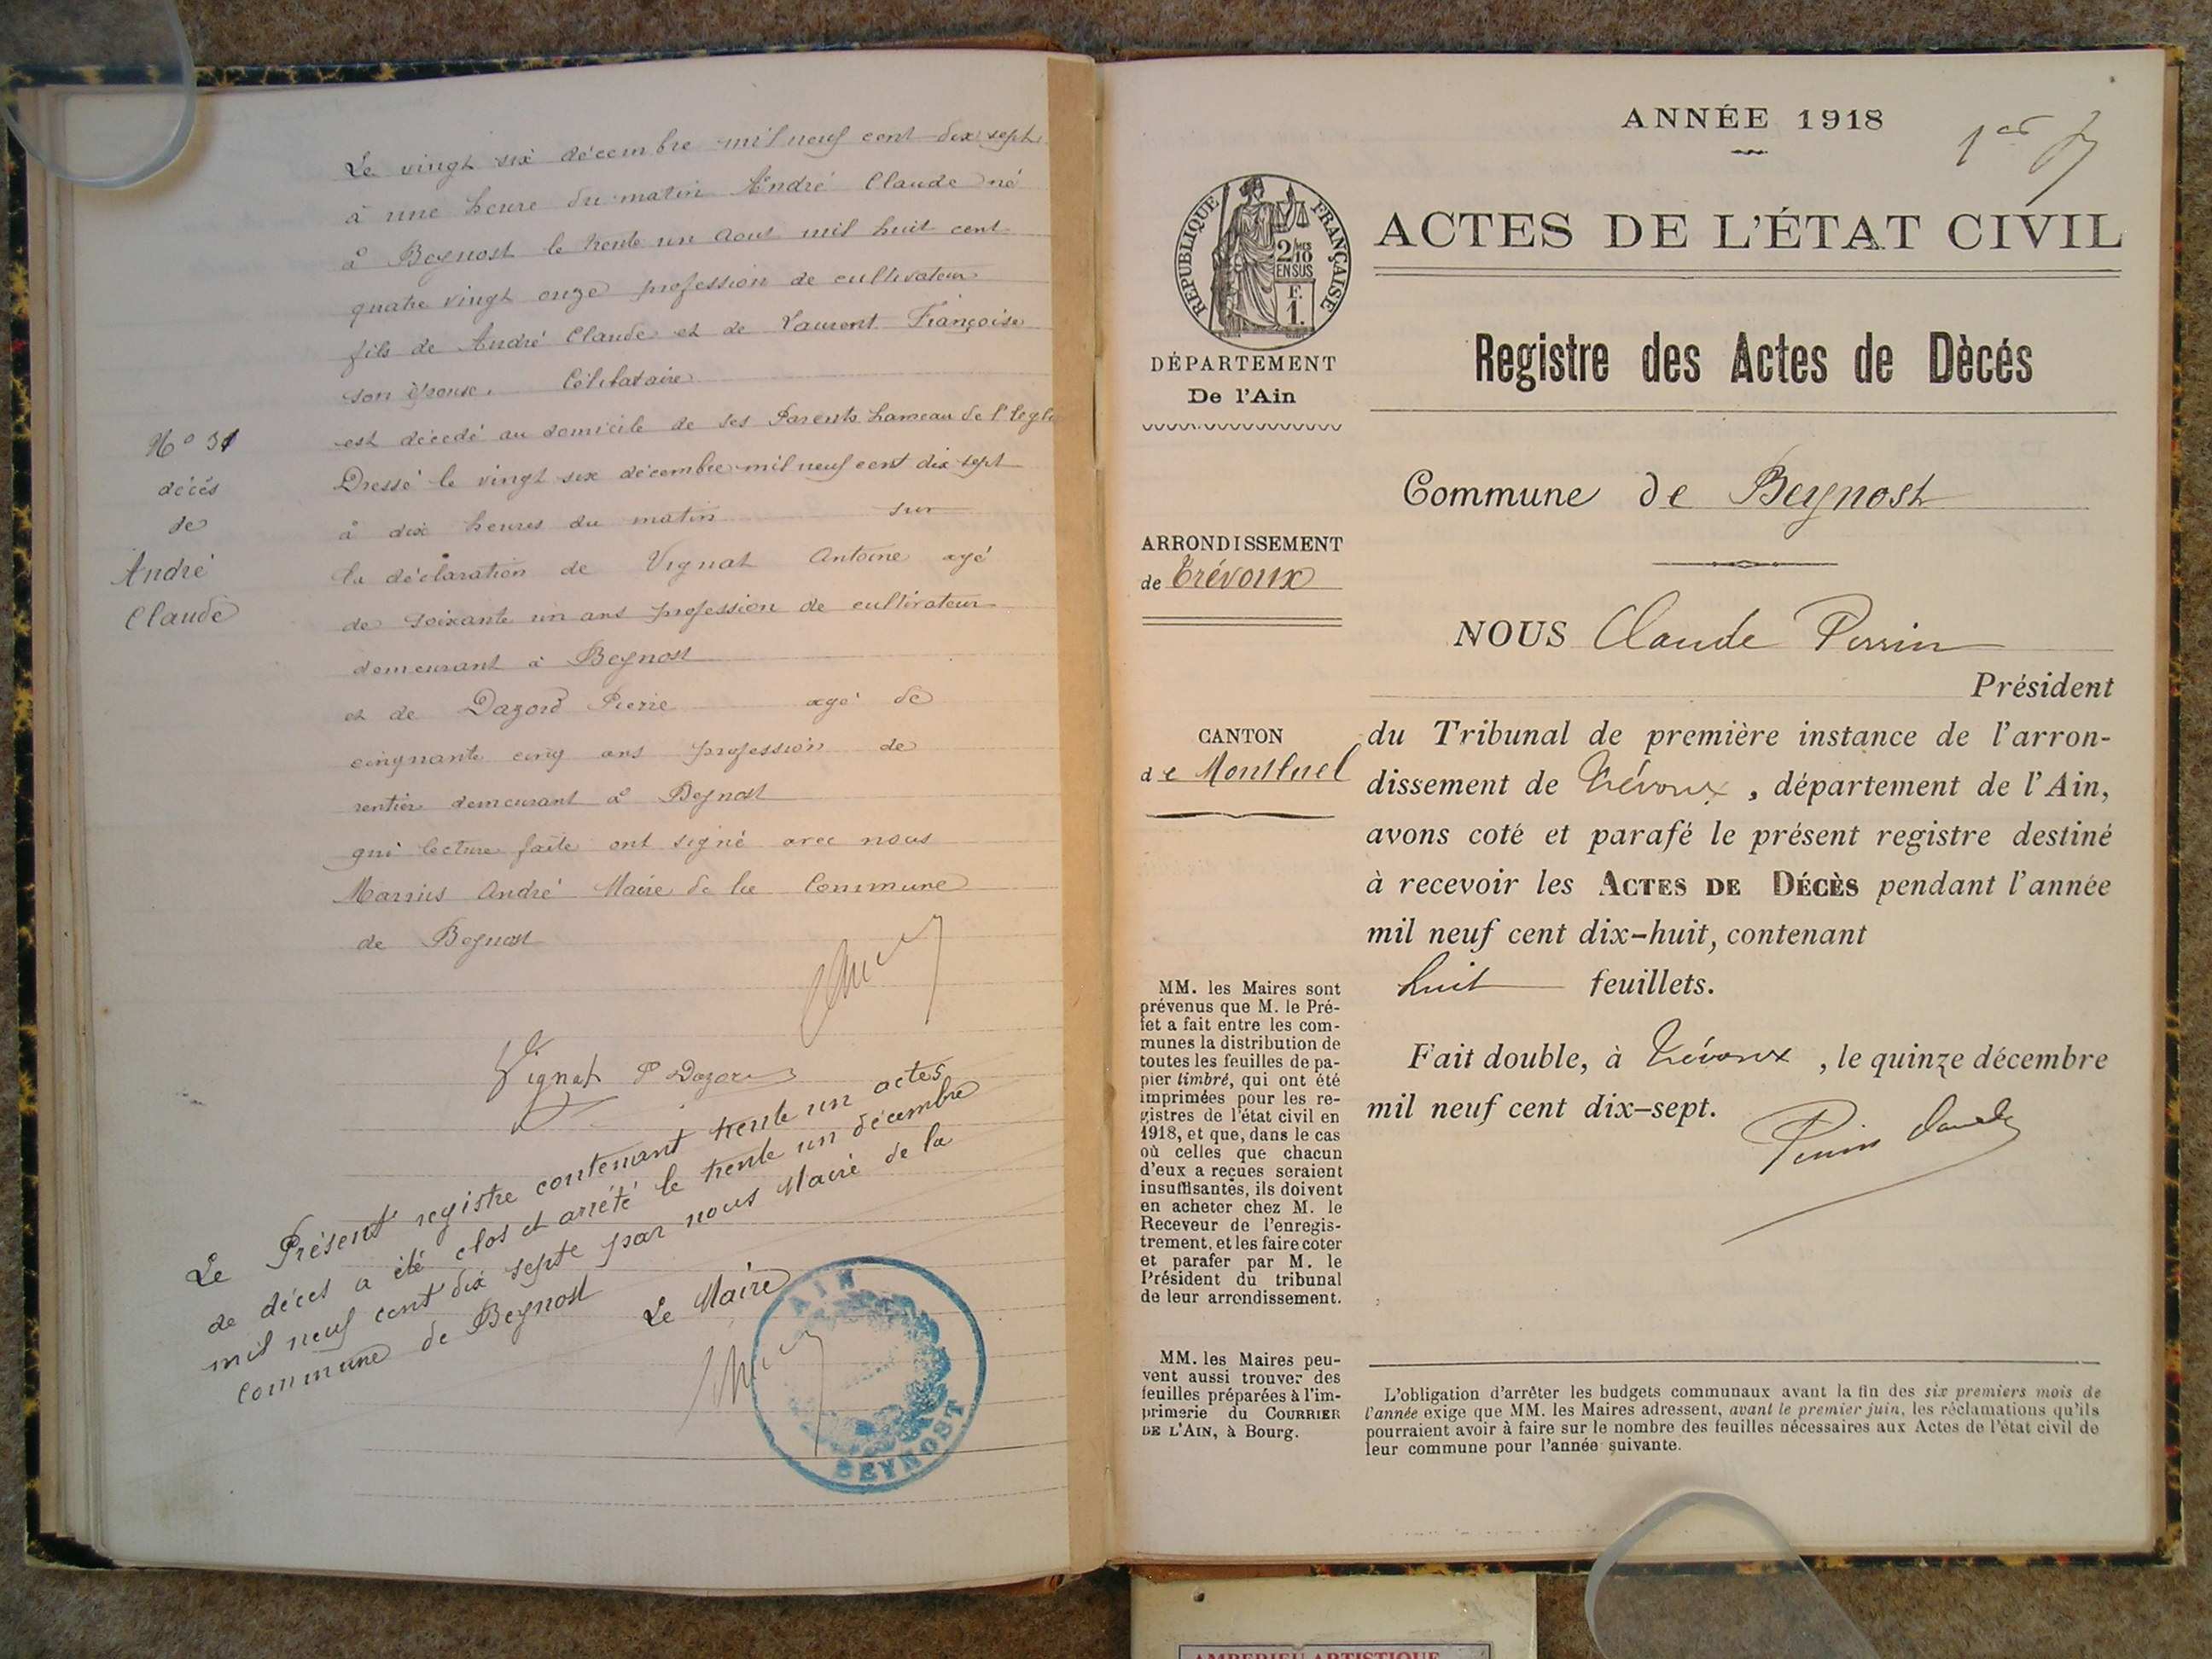 Le vingt six décembre mil neuf cent dix sept
à une heure du matin André Claude né
à Beynost le trente un Aout mil huit cent
quatre vingt onze profession de cultivateur
fils de André Claude et de Laurent Françoise
son épouse. Célibataire
est décédé au domicile de ses Parents hameau de l'
Dressé le vingt six décembre mil neuf cent dix sept
à dix heures du matin sur
la déclaration de Vignat Antoine agé
de soixante un ans profession de cultivateur
demeurant à Beynost
et de Dazord Pierre agé de
cinquante cinq ans profession de
rentier demeurant à Beynost
qui lecture faite ont signé avec nous
Marius André Maire de la Commune
de Beynost
N° 31
décés
de
André
Claude
Vignat P Dazord
Le Présent registre contenant trente un actes
de décès a été clos et arrété le trente un décembre
mil neuf cent dix sept par nous Maire de la
Commune de Beynost
Le Maire
AIN
BEYNOST
ANNÉE 1918
1er
RÉPUBLIQUE FRANÇAISE
2/10
EN SUS
F.
1.
ACTES DE L'ÉTAT CIVIL
DÉPARTEMENT
De l'Ain
Registre des Actes de Dècés
Commune de Beynost
ARRONDISSEMENT
de Trévoux
NOUS Claude Perrin
Président
CANTON
de Montluel
du Tribunal de première instance de l'arron-
dissement de Trévoux, département de l'Ain,
avons coté et parafé le présent registre destiné
à recevoir les ACTES DE DÉCÈS pendant l'année
mil neuf cent dix-huit, contenant
huit feuillets.
Fait double, à Trévoux, le quinze décembre
mil neuf cent dix-sept.
Perrin Claude
MM. les Maires sont
prévenus que M. le Pré-
fet a fait entre les com-
munes la distribution de
toutes les feuilles de pa-
pier timbré, qui ont été
imprimées pour les re-
gistres de l'état civil en
1918, et que, dans le cas
où celles que chacun
d'eux a reçues seraient
insuffisantes, ils doivent
en acheter chez M. le
Receveur de l'enregis-
trement, et les faire coter
et parafer par M. le
Président du tribunal
de leur arrondissement.
MM. les Maires peu-
vent aussi trouver des
feuilles préparées à l'im-
primerie du COURRIER
DE L'AIN, à Bourg.
L'obligation d'arrêter les budgets communaux avant la fin des six premiers mois de
l'année exige que MM. les Maires adressent, avant le premier juin, les réclamations qu'ils
pourraient avoir à faire sur le nombre des feuilles nécessaires aux Actes de l'état civil de
leur commune pour l'année suivante.
AMBERIEU ARTISTIQUE